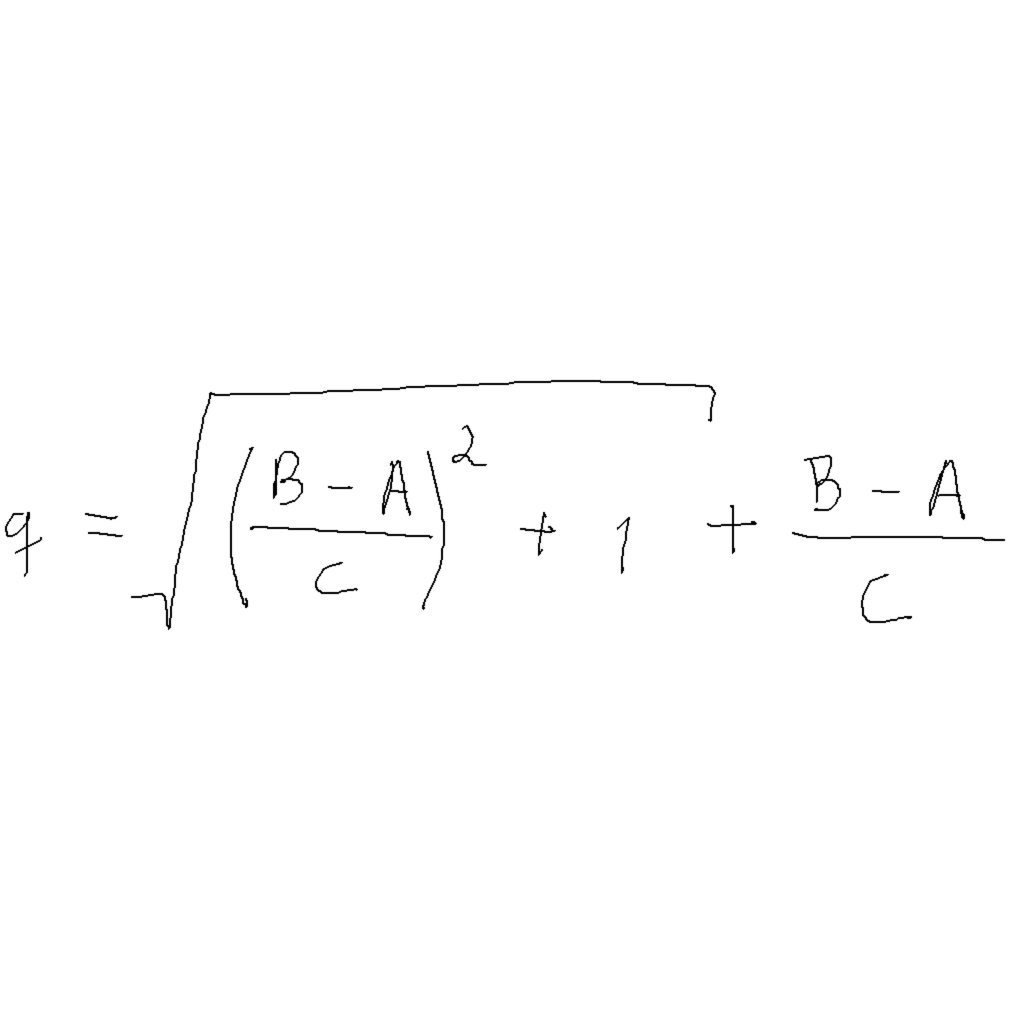 q = \sqrt{\left(\frac{B - A}{C}\right)^2 + 1} + \frac{B - A}{C}